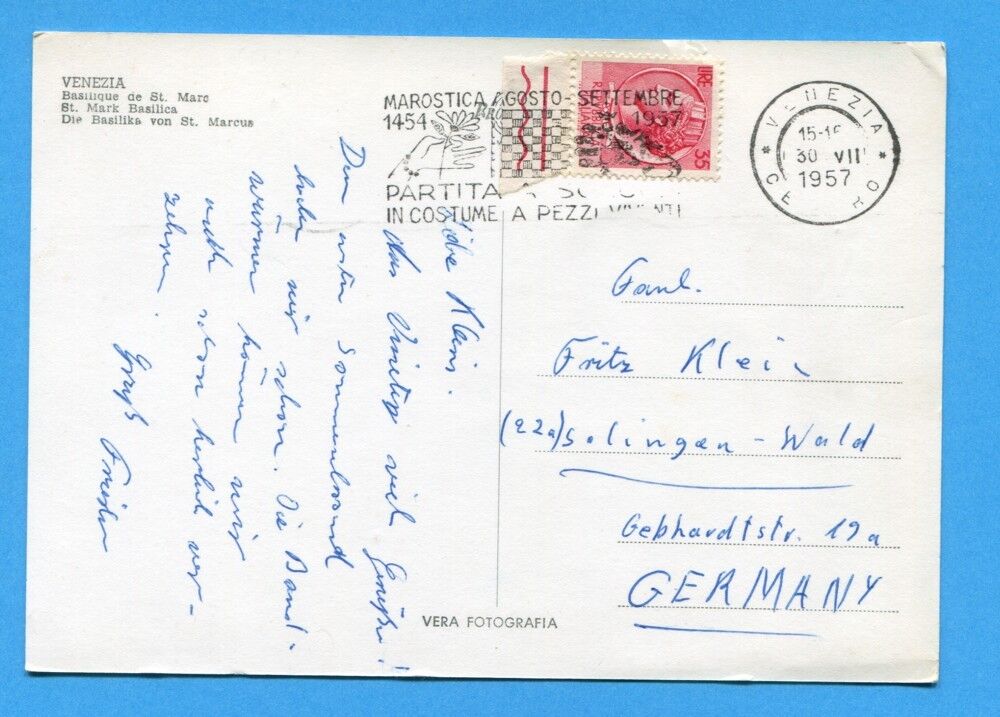 VENEZIA
Basilique de St. Marc
St. Mark Basilica
Die Basilika von St. Marcus
MAROSTICA AGOSTO-SETTEMBRE
1454 1957
PARTITA A
IN COSTUME A PEZZI
LIRE
35
VENEZIA
15-1
30 VII
1957
Liebe Kleins.
Aus Venedig viel Grüße!
Den ersten Sonnenbrand
haben wir schon. Die Band-
würmer können wir
auch schon herlich ver-
zehren.
Gruß
Faml.
Fritz Klein
(22a) Solingen - Wald
Gebhardtstr. 19a
GERMANY
VERA FOTOGRAFIA